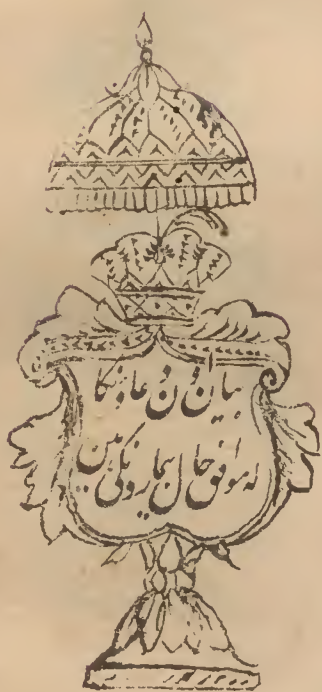 بیان اُن دعاونکا
که موافق حال بیمارونکی ہین